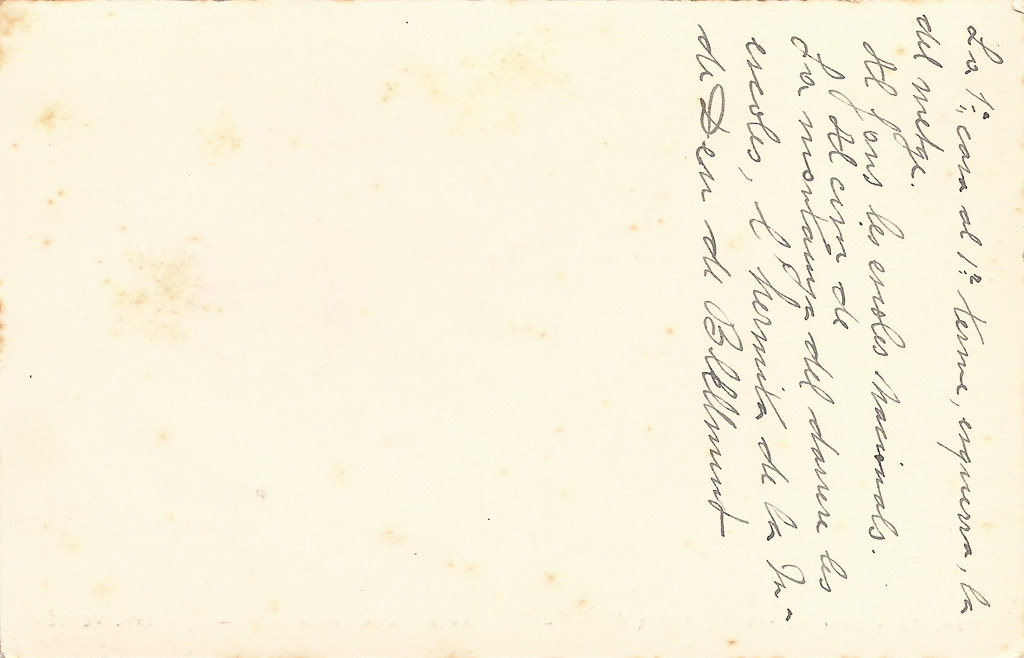 La 1ª, casa al 1er terme, esquerra, la
del metge.
Al fons les escoles nacionals.
Al cim de
La montanya del darrere les
escoles, l'hermita de la
de Deu de Bellmunt